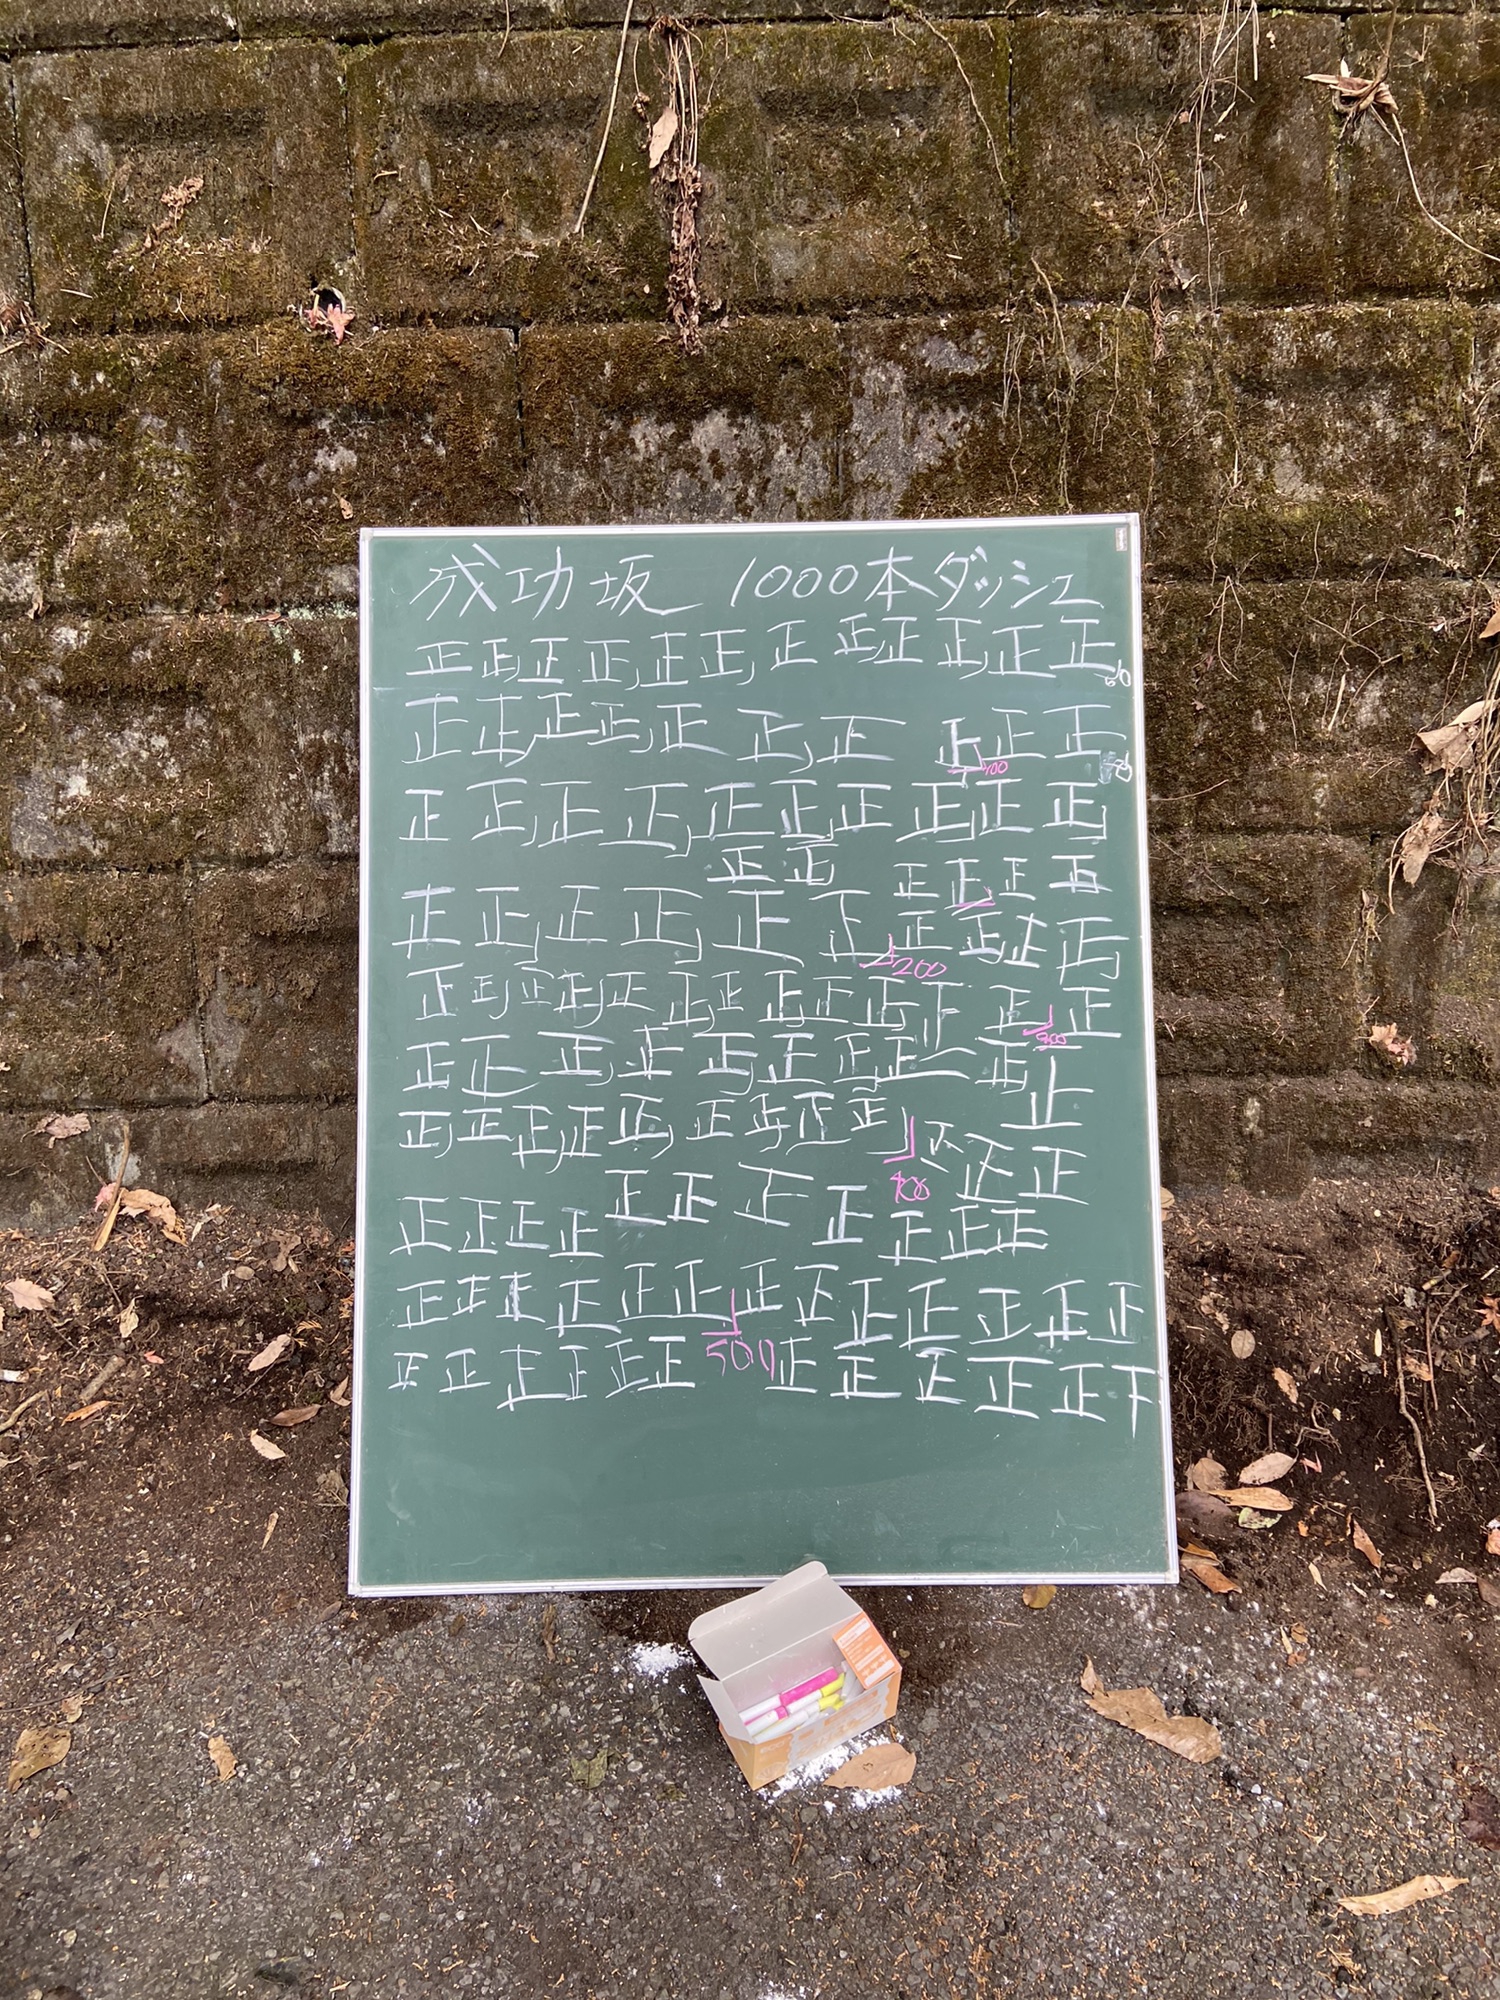 成功坂 1000本ダッシュ
正正正正正正正正正正正正
正正正正正正正正正正
100
正正正正正正正正正正
正正正正正正
正正正正正正正正正正
200
正正正正正正正正正正正正正
正正正正正正正正正
正正正正正正正正正正正
400
正正正正正正正正
正正正正正正正
正正正正正正正正正正正正正
500
正正正正正正正正正正正下